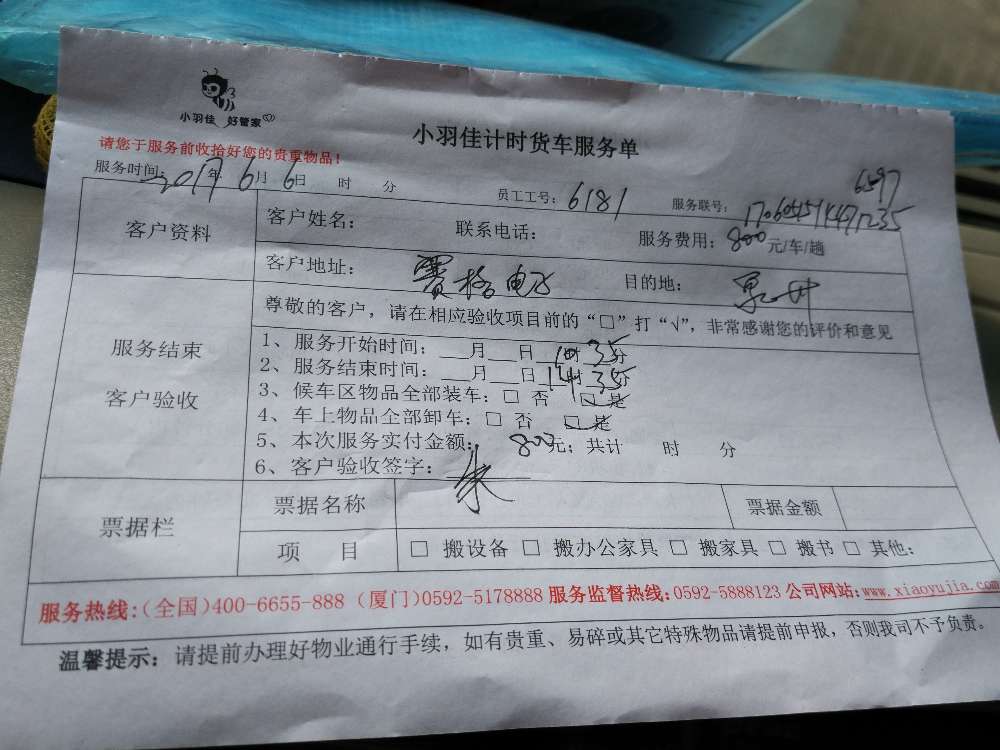 小羽佳 好管家
小羽佳计时货车服务单
请您于服务前收拾好您的贵重物品！
服务时间：2017年6月6日 时 分 员工工号：6181 服务联号：
6597
客户资料
客户姓名： 联系电话： 服务费用：800元/车/趟
客户地址：赛格电子 目的地：
服务结束
客户验收
尊敬的客户，请在相应验收项目前的“□”打“√”，非常感谢您的评价和意见
1、服务开始时间：__月__日 时35分
2、服务结束时间：__月__日14时35分
3、候车区物品全部装车：□ 否 □ 是
4、车上物品全部卸车：□ 否 □ 是
5、本次服务实付金额：800元；共计 时 分
6、客户验收签字：朱
票据栏
票据名称 票据金额
项 目 □ 搬设备 □ 搬办公家具 □ 搬家具 □ 搬书 □ 其他：
服务热线：（全国）400-6655-888（厦门）0592-5178888 服务监督热线：0592-5888123 公司网站：www.xiaoyujia.com
温馨提示：请提前办理好物业通行手续，如有贵重、易碎或其它特殊物品请提前申报，否则我司不予负责。